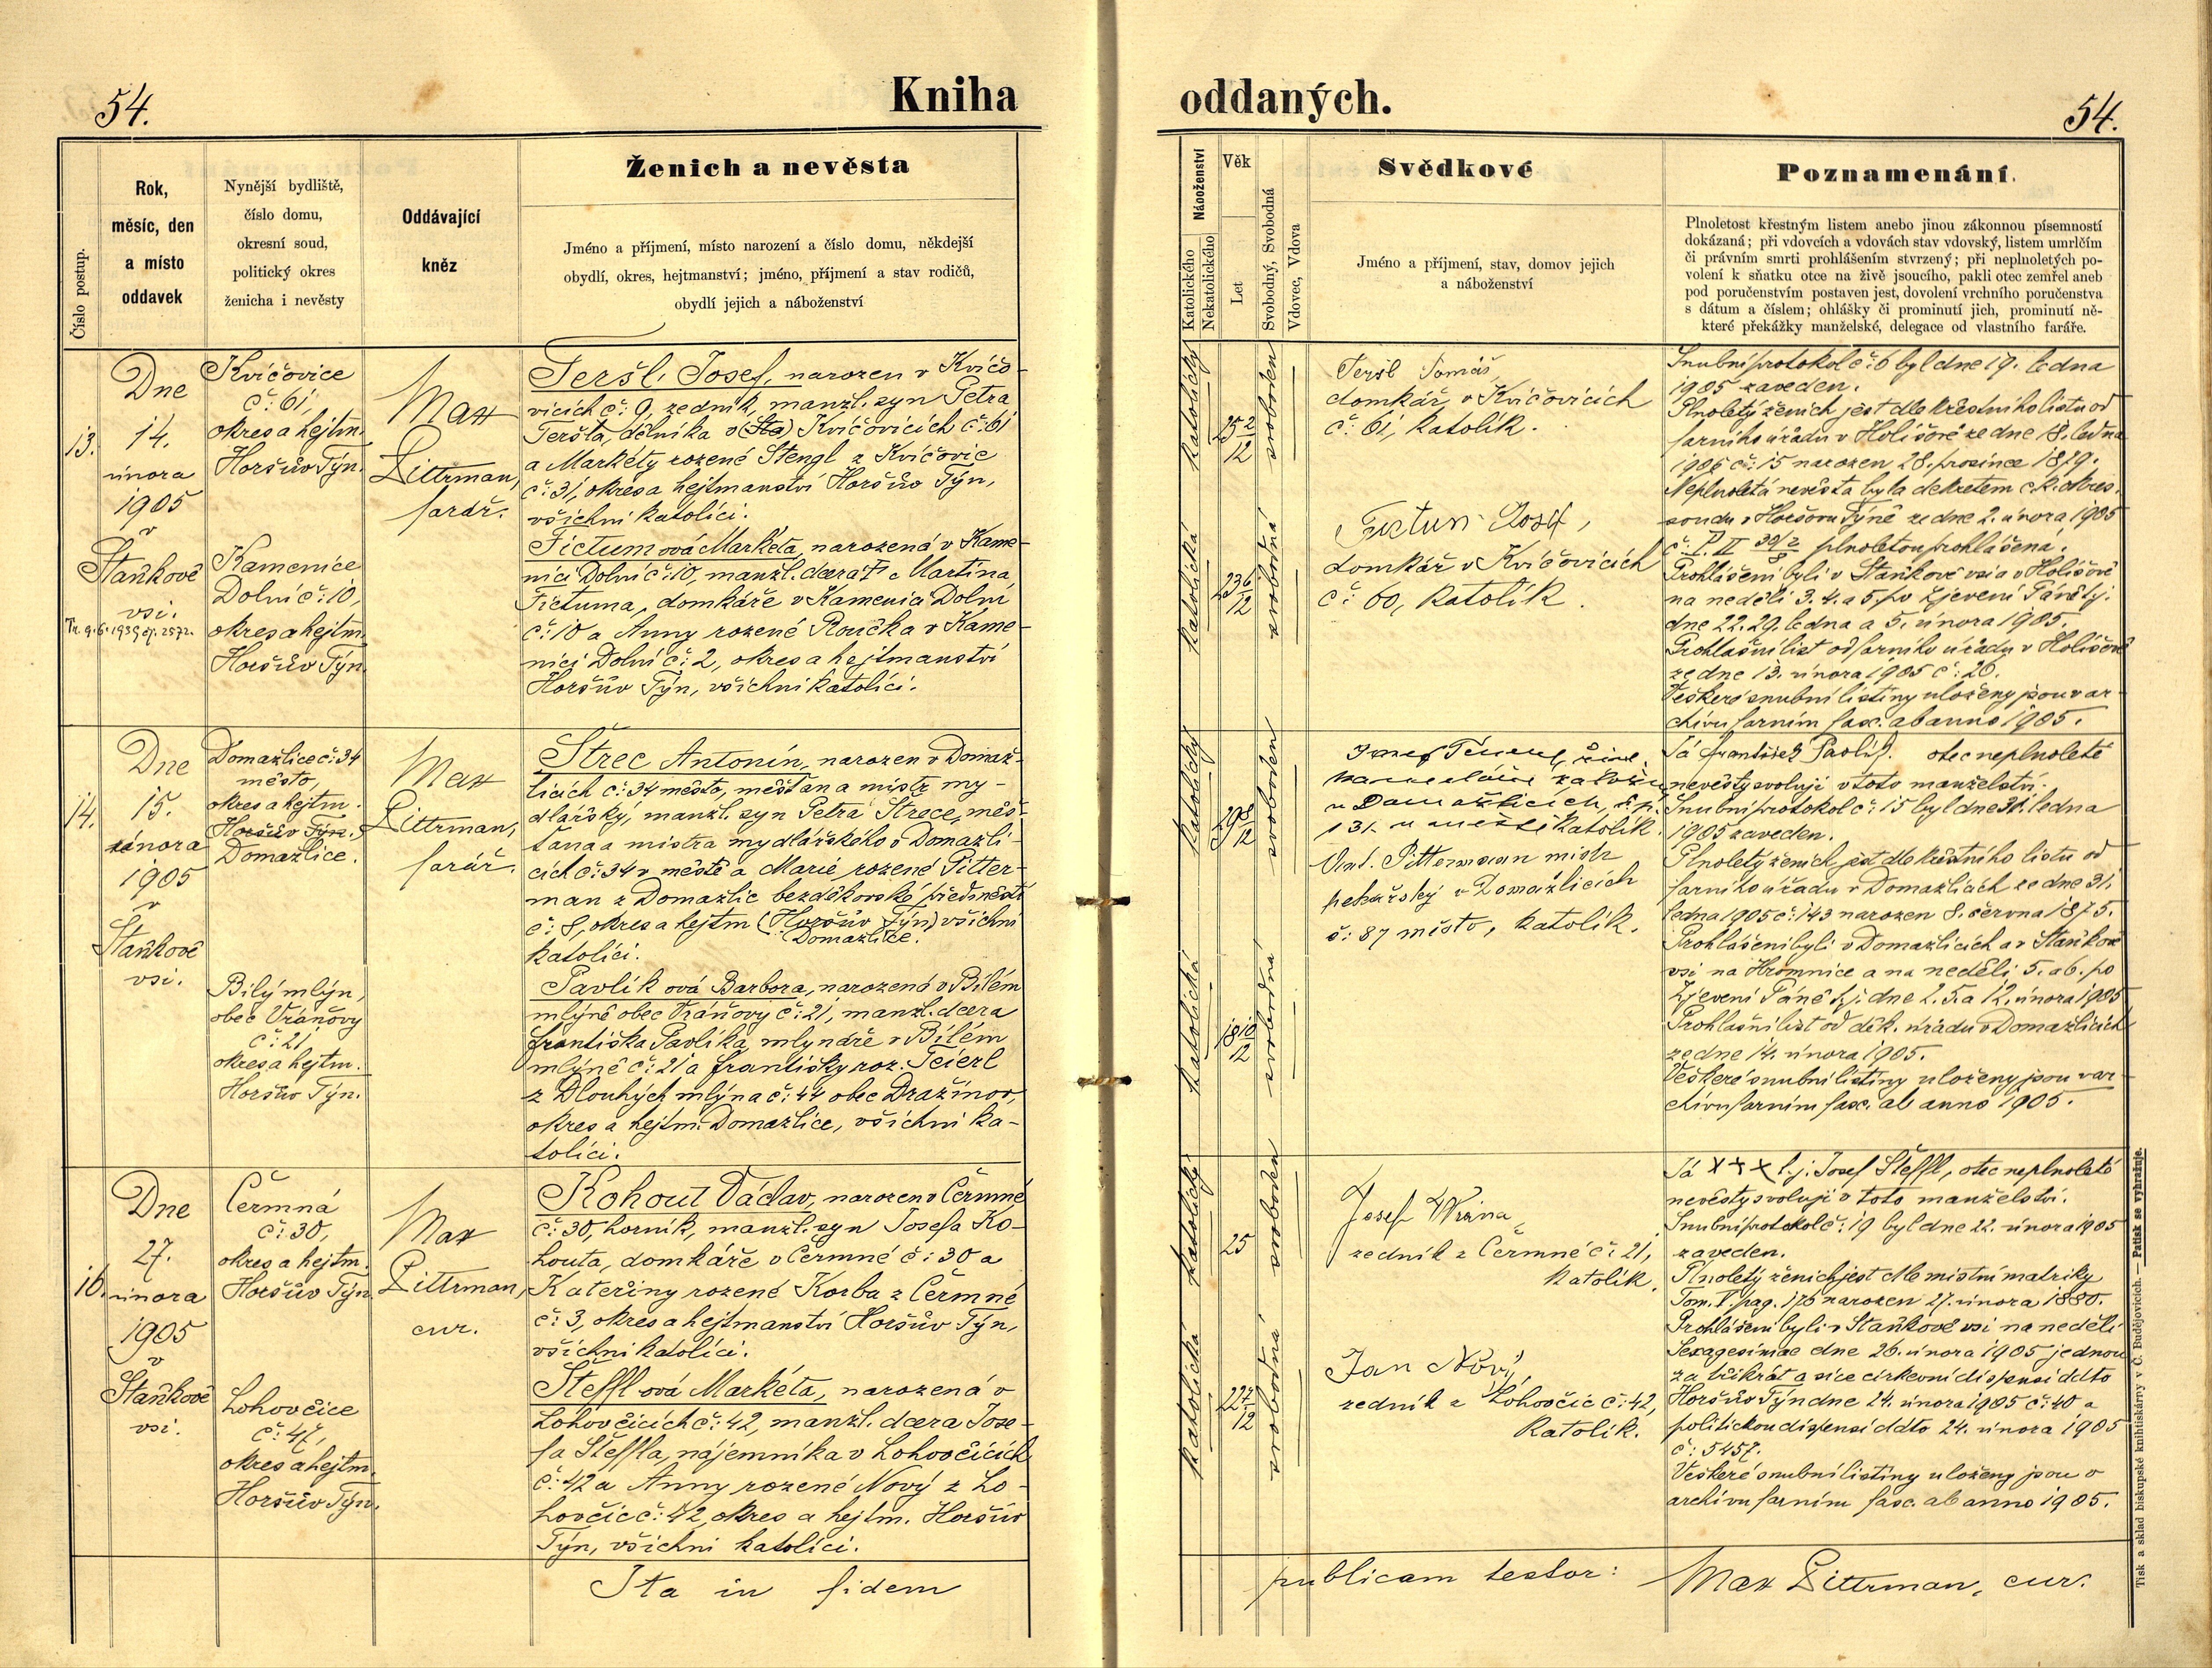 54.
Kniha
oddaných.
54.
Číslo postup.
Rok,
měsíc, den
a místo
oddavek
Nynější bydliště,
číslo domu,
okresní soud,
politický okres
ženicha i nevěsty
Oddávající
kněz
Ženich a nevěsta
Jméno a příjmení, místo narození a číslo domu, někdejší
obydlí, okres, hejtmanství; jméno, příjmení a stav rodičů,
obydlí jejich a náboženství
Náboženství
Katolického
Nekatolického
Věk
Let
Svobodný, Svobodná
Vdovec, Vdova
Svědkové
Jméno a příjmení, stav, domov jejich
a náboženství
Poznamenání.
Plnoletost křestným listem anebo jinou zákonnou písemností
dokázaná; při vdovcích a vdovách stav vdovský, listem umrlčím
či právním smrti prohlášením stvrzený; při neplnoletých po-
volení k sňatku otce na živě jsoucího, pakli otec zemřel aneb
pod poručenstvím postaven jest, dovolení vrchního poručenstva
s dátum a číslem; ohlášky či prominutí jich, prominutí ně-
které překážky manželské, delegace od vlastního faráře.
13.
Dne
14.
února
1905
v
Staňkově
vsi.
Kvíčovice
č: 61,
okres a hejtm.
Horšův Týn.
Kamenice
Dolní č: 10,
okres a hejtm.
Horšův Týn.
Max
Zittrman,
farář.
Teršl Josef, narozen v Kvíčo-
vicích č: 9, zedník, manžl. syn Petra
Teršla, dělníka v (Sta) Kvíčovicích č: 61
a Markéty rozené Stengl z Kvíčovic
č: 31, okres a hejtmanství Horšův Týn,
všichni katolíci.
Fictumová Markéta, narozená v Kame-
nici Dolní č: 10, manžl. dcera † Martina
Fictuma, domkáře v Kamenici Dolní
č: 10 a Anny rozené Roučka v Kame-
nici Dolní č: 2, okres a hejtmanství
Horšův Týn, všichni katolíci.
katolický
25 2/12
svoboden
katolická
23 6/12
svobodná
Teršl Tomáš,
domkář v Kvíčovicích
č: 61, katolík.
Fictum Josef,
domkář v Kvíčovicích
č: 60, katolík.
Snubní protokol č: 6 byl dne 19. ledna
1905 zaveden.
Plnoletý ženich jest dle křestního listu od
farního úřadu v Holišově ze dne 18. ledna
1905 č: 15 narozen 28. prosince 1879.
Neplnoletá nevěsta byla dekretem c. k. okres.
soudu v Horšovu Týně ze dne 2. února 1905
č: P. II 39/2 8 plnoletou prohlášená.
Prohlášeni byli v Staňkově vsi a v Holišově
na neděli 3. 4. a 5. po Zjevení Páně t.j.
dne 22. 29. ledna a 5. února 1905.
Prohlašní list od farního úřadu v Holišově
ze dne 13. února 1905 č: 26.
Veškeré snubní listiny uloženy jsou v ar-
chivu farním fasc. ab anno 1905.
14.
Dne
15.
února
1905
v
Staňkově
vsi.
Domažlice č: 34
město,
okres a hejtm.
Horšův Týn.
Domažlice.
Bílý mlýn,
obec Vránovy
č: 21,
okres a hejtm.
Horšův Týn.
Max
Zittrman,
farář.
Štrec Antonín, narozen v Domaž-
licích č: 34 město, měšťan a mistr my-
dlářský, manžl. syn Petra Štrece, měš-
ťana a mistra mydlářského v Domažli-
cích č: 34 v městě a Marie rozené Pitter-
man z Domažlic bezděkovské předměstí
č: 8, okres a hejtm (Horšův Týn) všichni
Domažlice.
katolíci.
Pavlíková Barbora, narozená v Bílém
mlýně obec Vránovy č: 21, manžl. dcera
Františka Pavlíka mlynáře v Bílém
mlýně č: 21 a Františky roz. Teierl
z Dlouhých mlýna č: 44 obec Dražinov,
okres a hejtm. Domažlice, všichni ka-
tolíci.
katolický
29 8/12
svoboden
katolická
18 10/12
svobodná
u Domažlicích, č. p.
131 u městě katolík.
Ant. Pittermann mistr
pekařský v Domažlicích
č: 87 město, katolík.
Já František Pavlík. otec neplnoleté
nevěsty svoluji v toto manželství.
Snubní protokol č: 15 byl dne 31. ledna
1905 zaveden.
Plnoletý ženich jest dle křestního listu od
farního úřadu v Domažlicích ze dne 31.
ledna 1905 č: 143 narozen 8. června 1875.
Prohlášeni byli v Domažlicích a v Staňkově
vsi na Hromnice a na neděli 5. a 6. po
Zjevení Páně t.j. dne 2. 5. a 12. února 1905.
Prohlašní list od děk. úřadu v Domažlicích
ze dne 14. února 1905.
Veškeré snubní listiny uloženy jsou v ar-
chivu farním fasc. ab anno 1905.
16.
Dne
27.
února
1905
v
Staňkově
vsi.
Čermná
č: 30,
okres a hejtm.
Horšův Týn
Lohovčice
č: 42,
okres a hejtm.
Horšův Týn.
Max
Zittrman,
cur.
Kohout Václav, narozen v Čermné
č: 30, horník, manžl. syn Josefa Ko-
houta, domkáře v Čermné č: 30 a
Kateřiny rozené Korba z Čermné
č: 3, okres a hejtmanství Horšův Týn,
všichni katolíci.
Štefflová Markéta, narozená v
Lohovčicích č: 42, manžl. dcera Jose-
fa Šteffla, nájemníka v Lohovčicích
č: 42 a Anny rozené Nový z Lo-
hovčic č: 42, okres a hejtm. Horšův
Týn, všichni katolíci.
katolický
25
svoboden
katolická
22 7/12
svobodná
Josef Wrána,
zedník z Čermné č: 21,
katolík.
Jan Nový,
zedník z Lohovčic č: 42,
katolík.
Já +++ t.j. Josef Šteffl, otec neplnoleté
nevěsty svoluji v toto manželství.
Snubní protokol č: 19 byl dne 22. února 1905
zaveden.
Plnoletý ženich jest dle místní matriky
Tom. V. pag. 176 narozen 27. února 1880.
Prohlášeni byli v Staňkově vsi na neděli
Sexagesimae dne 26. února 1905 jednou
za třikrát a sice církevní dispensí ddto
Horšův Týn dne 24. února 1905 č: 40 a
politickou dispensí ddto 24. února 1905
č: 5457.
Veškeré snubní listiny uloženy jsou v
archivu farním fasc. ab anno 1905.
Ita in fidem
publicam testor:
Max Zittrman, cur.
Tisk a sklad biskupské knihtiskárny v Č. Budějovicích. — Patisk se vyhražuje.